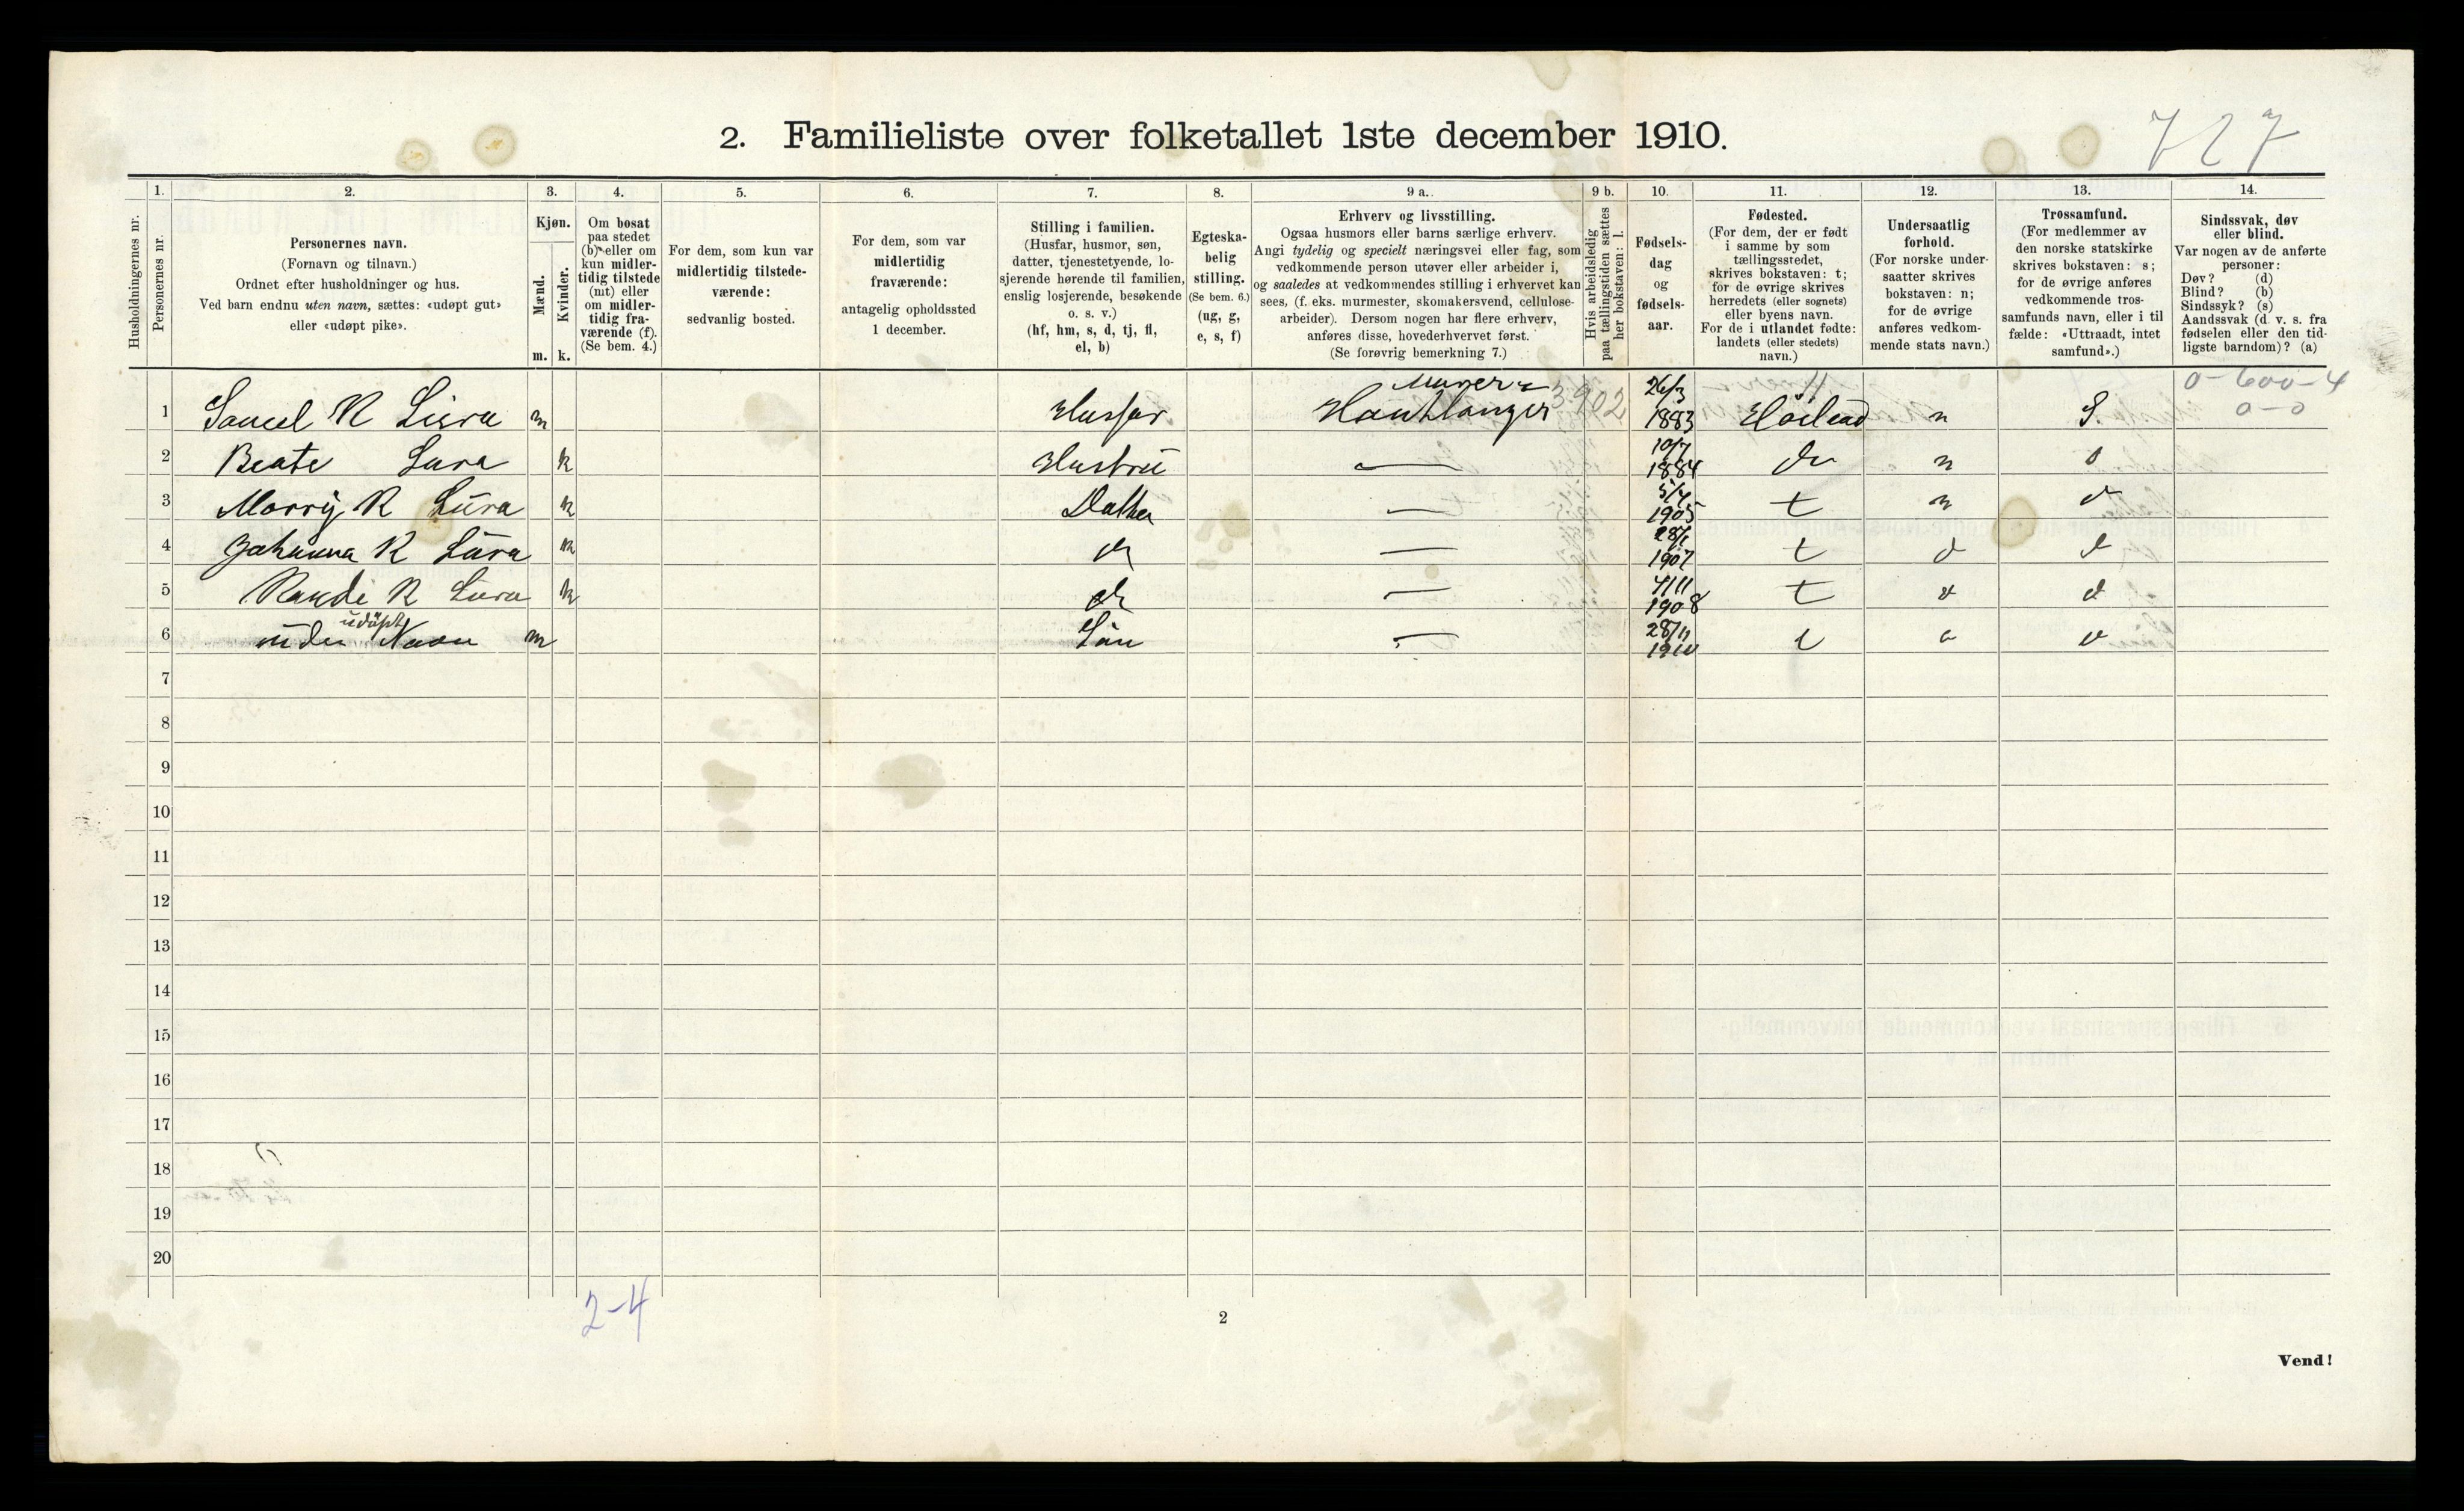 727
2. Familieliste over folketallet 1ste december 1910.
Husholdningernes nr.
1. Personernes nr.
2. Personernes navn. (Fornavn og tilnavn.) Ordnet efter husholdninger og hus. Ved barn endnu uten navn, sættes: «udøpt gut» eller «udøpt pike».
3. Kjøn. Mænd. m. Kvinder. k.
4. Om bosat paa stedet (b) eller om kun midlertidig tilstede (mt) eller om midlertidig fraværende (f). (Se bem. 4.)
5. For dem, som kun var midlertidig tilstedeværende: sedvanlig bosted.
6. For dem, som var midlertidig fraværende: antagelig opholdssted 1 december.
7. Stilling i familien. (Husfar, husmor, søn, datter, tjenestetyende, losjerende hørende til familien, enslig losjerende, besøkende o. s. v.) (hf, hm, s, d, tj, fl, el, b)
8. Egteskabelig stilling. (Se bem. 6.) (ug, g, e, s, f)
9 a. Erhverv og livsstilling. Ogsaa husmors eller barns særlige erhverv. Angi tydelig og specielt næringsvei eller fag, som vedkommende person utøver eller arbeider i, og saaledes at vedkommendes stilling i erhvervet kan sees, (f. eks. murmester, skomakersvend, cellulosearbeider). Dersom nogen har flere erhverv, anføres disse, hovederhvervet først. (Se forøvrig bemerkning 7.)
9 b. Hvis arbeidsledig paa tællingstiden sættes her bokstaven: l.
10. Fødselsdag og fødselsaar.
11. Fødested. (For dem, der er født i samme by som tællingsstedet, skrives bokstaven: t; for de øvrige skrives herredets (eller sognets) eller byens navn. For de i utlandet fødte: landets (eller stedets) navn.)
12. Undersaatlig forhold. (For norske undersaatter skrives bokstaven: n; for de øvrige anføres vedkommende stats navn.)
13. Trossamfund. (For medlemmer av den norske statskirke skrives bokstaven: s; for de øvrige anføres vedkommende trossamfunds navn, eller i tilfælde: «Uttraadt, intet samfund».)
14. Sindssvak, døv eller blind. Var nogen av de anførte personer: Døv? (d) Blind? (b) Sindssyk? (s) Aandssvak (d. v. s. fra fødselen eller den tidligste barndom)? (a)
0-600-4
0-0
1 R Lura m Husfar Murer 3902 26/3 1883 n S.
2 Beate Lura k Hustru — 10/7 1884 do n s
3 R Lura k Datter — 1905 t n d
4 Johanna R Lura k do — 1907 t d d
5 R Lura k do — 4/11 1908 t d d
6 uden udöpt Navn m Sön — 28/11 1910 t d d
7
8
9
10
11
12
13
14
15
16
17
18
19
20
2-4
2
Vend!